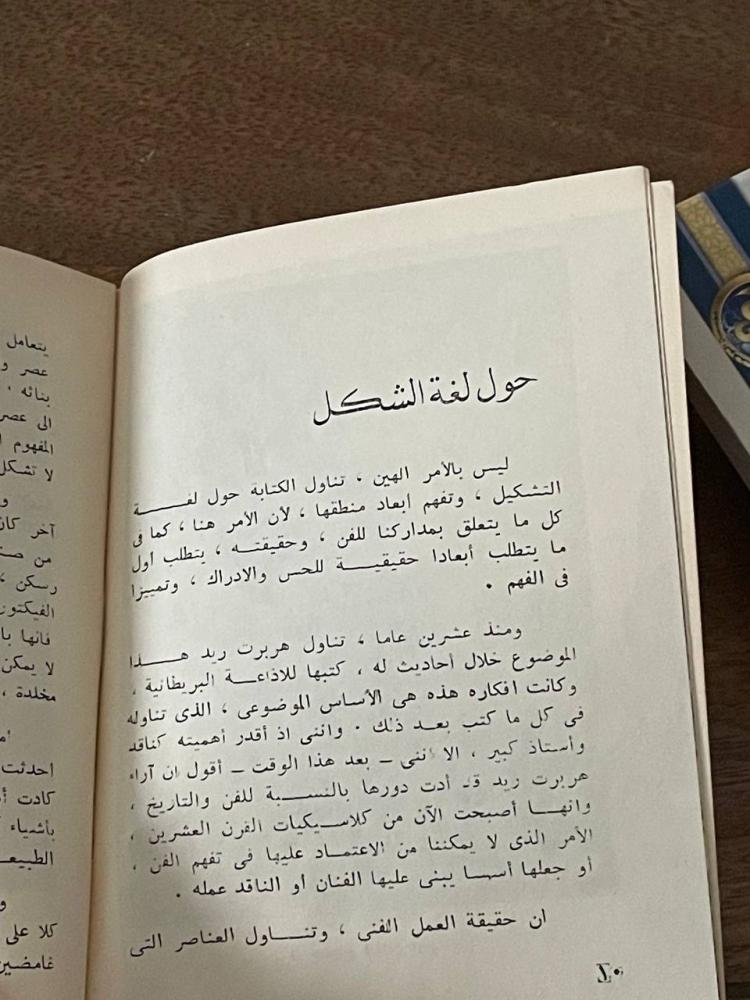 حول لغة الشكل
ليس بالأمر الهين ، تناول الكتابة حول لغـــــــة
التشكيل ، وتفهم ابعاد منطقها ، لأن الأمر هنا ، كما فى
كل ما يتعلق بمداركنا للفن ، وحقيقتــه ، يتطلب اول
ما يتطلب أبعادا حقيقيـــة للحس والادراك ، وتمييزا
فى الفهم .
ومنذ عشرين عاما ، تناول هربرت ريد هـــــذا
الموضوع خلال أحاديث له ، كتبها للاذاعــة البريطانية ،
وكانت افكاره هذه هى الأساس الموضوعى ، الذى تناوله
فى كل ما كتب بعـد ذلك . واننى اذ أقدر أهميته كناقد
وأستاذ كبير ، الا أننى ــ بعد هذا الوقت ــ أقول ان آراء
هربرت ريد قد أدت دورها بالنســـبة للفن والتاريخ ،
وانهــا أصبحت الآن من كلاسيكيات القرن العشرين ،
الأمر الذى لا يمكننا من الاعتمـاد عليها فى تفهم الفن ،
أو جعلها أسسا يبنى عليها الفنان أو الناقد عمله .
ان حقيقة العمل الفنى ، وتنــاول العناصر التى
يتعامل
عصر و
بنائه ،
الى عصر
المفهوم ا
لا تشكل
و
آخر كان
من صـ
رسكن ،
الفيكتور
فانها با
لا يمكن
مخلدة ،
احدثت
كادت أ
بأشياء ك
الطبيعـ
و
كلا على
غامضين